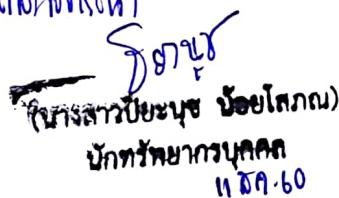 (นางสาวปิยะนุช น้อยโสภณ)
นักทรัพยากรบุคคล
11 ส.ค. 60